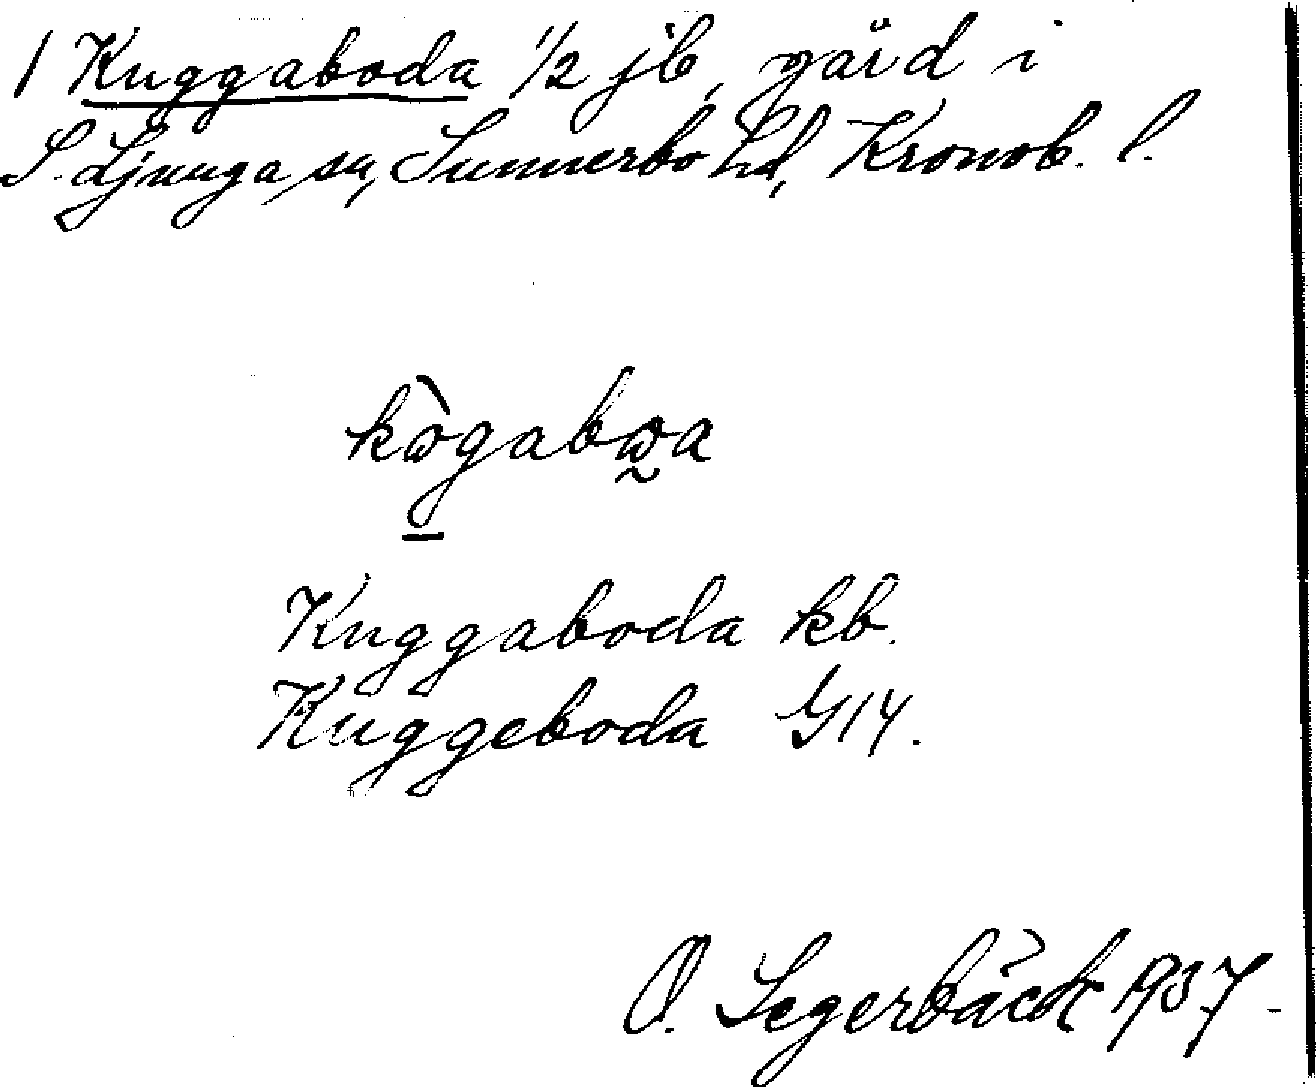 1 Kuggaboda 1/2 jb, gård i
S. Ljunga sn, Sunnerbo hd, Kronob. l.
Kuggaboda kb.
Kuggeboda G14.
O. Segerbäck 1937